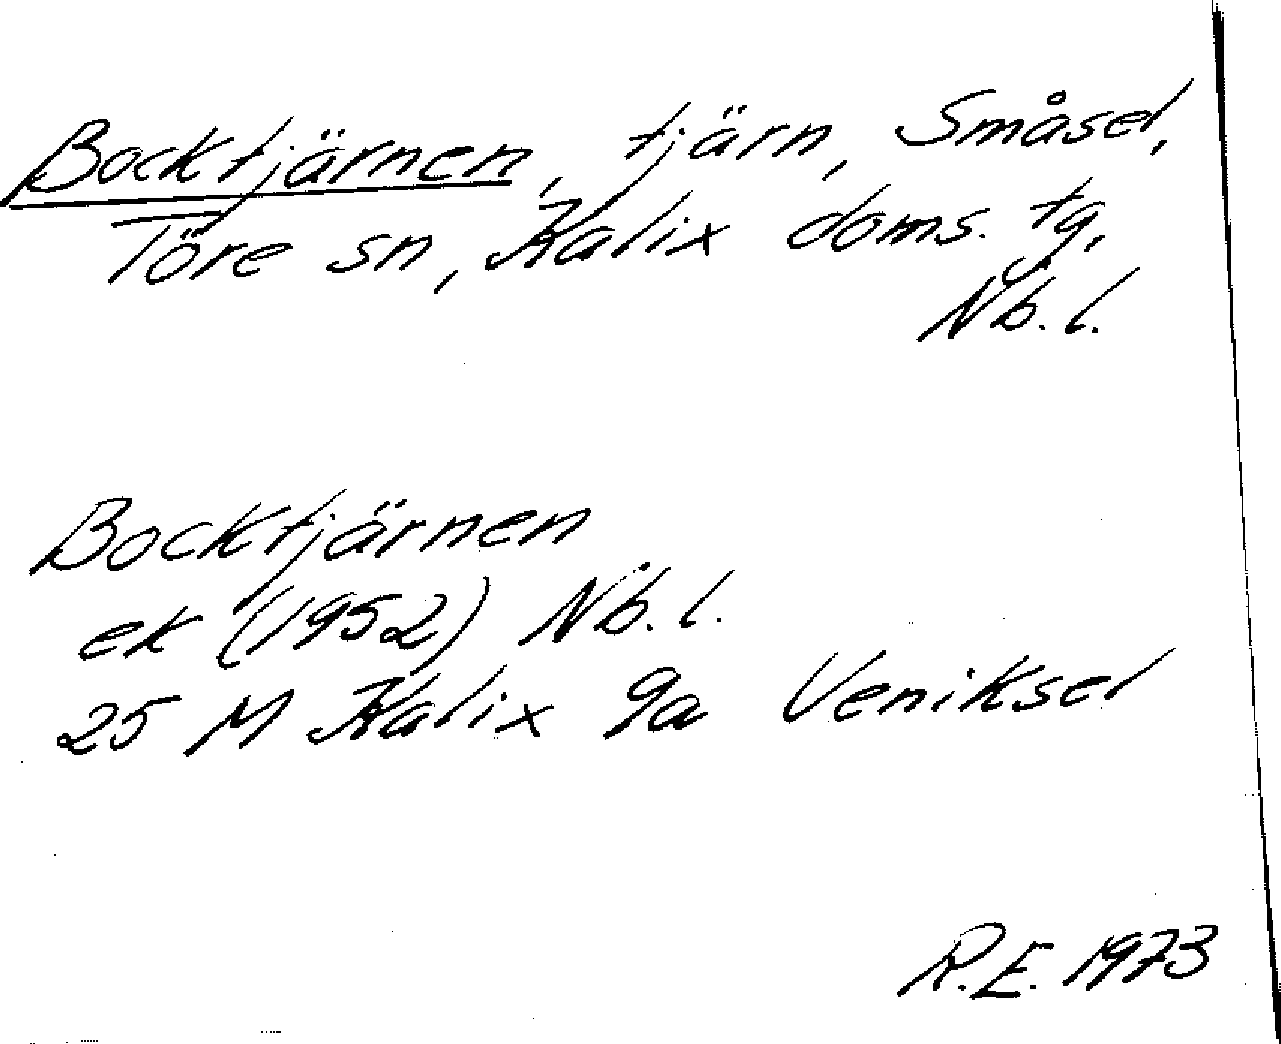 Bocktjärnen, tjärn, Småsel,
Töre sn, Kalix doms. tg,
Nb. l.
Bocktjärnen
ek (1952) Nb. l.
25 M Kalix 9a Veniksel
R.E. 1973